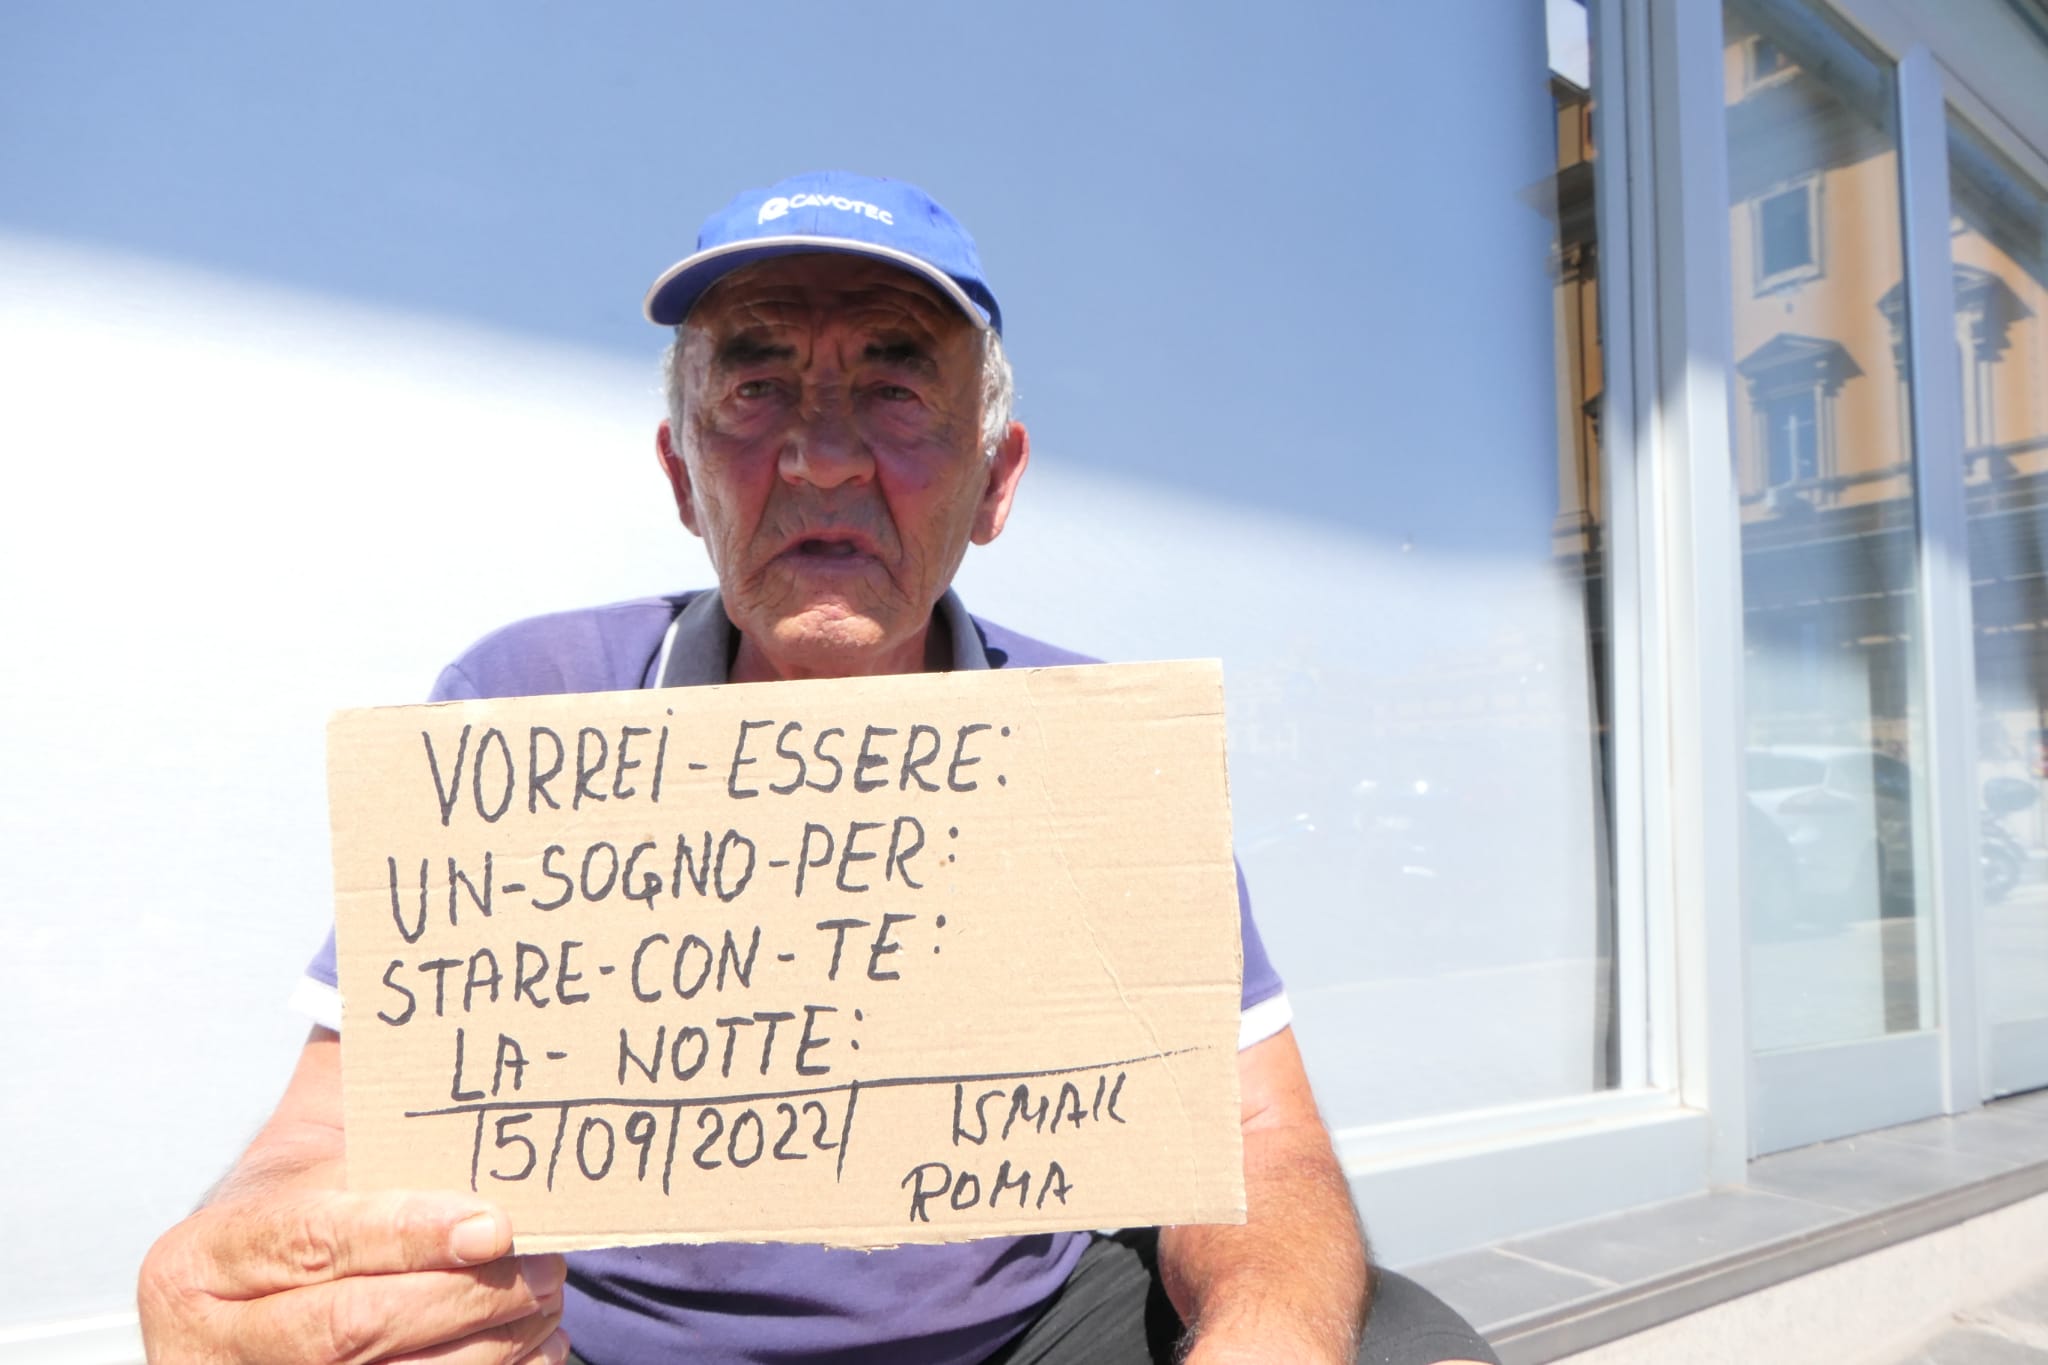 CAVOTEC
VORREI-ESSERE:
UN-SOGNO-PER:
STARE-CON-TE:
LA-NOTTE:
15/09/2022/ ISMAIL
ROMA